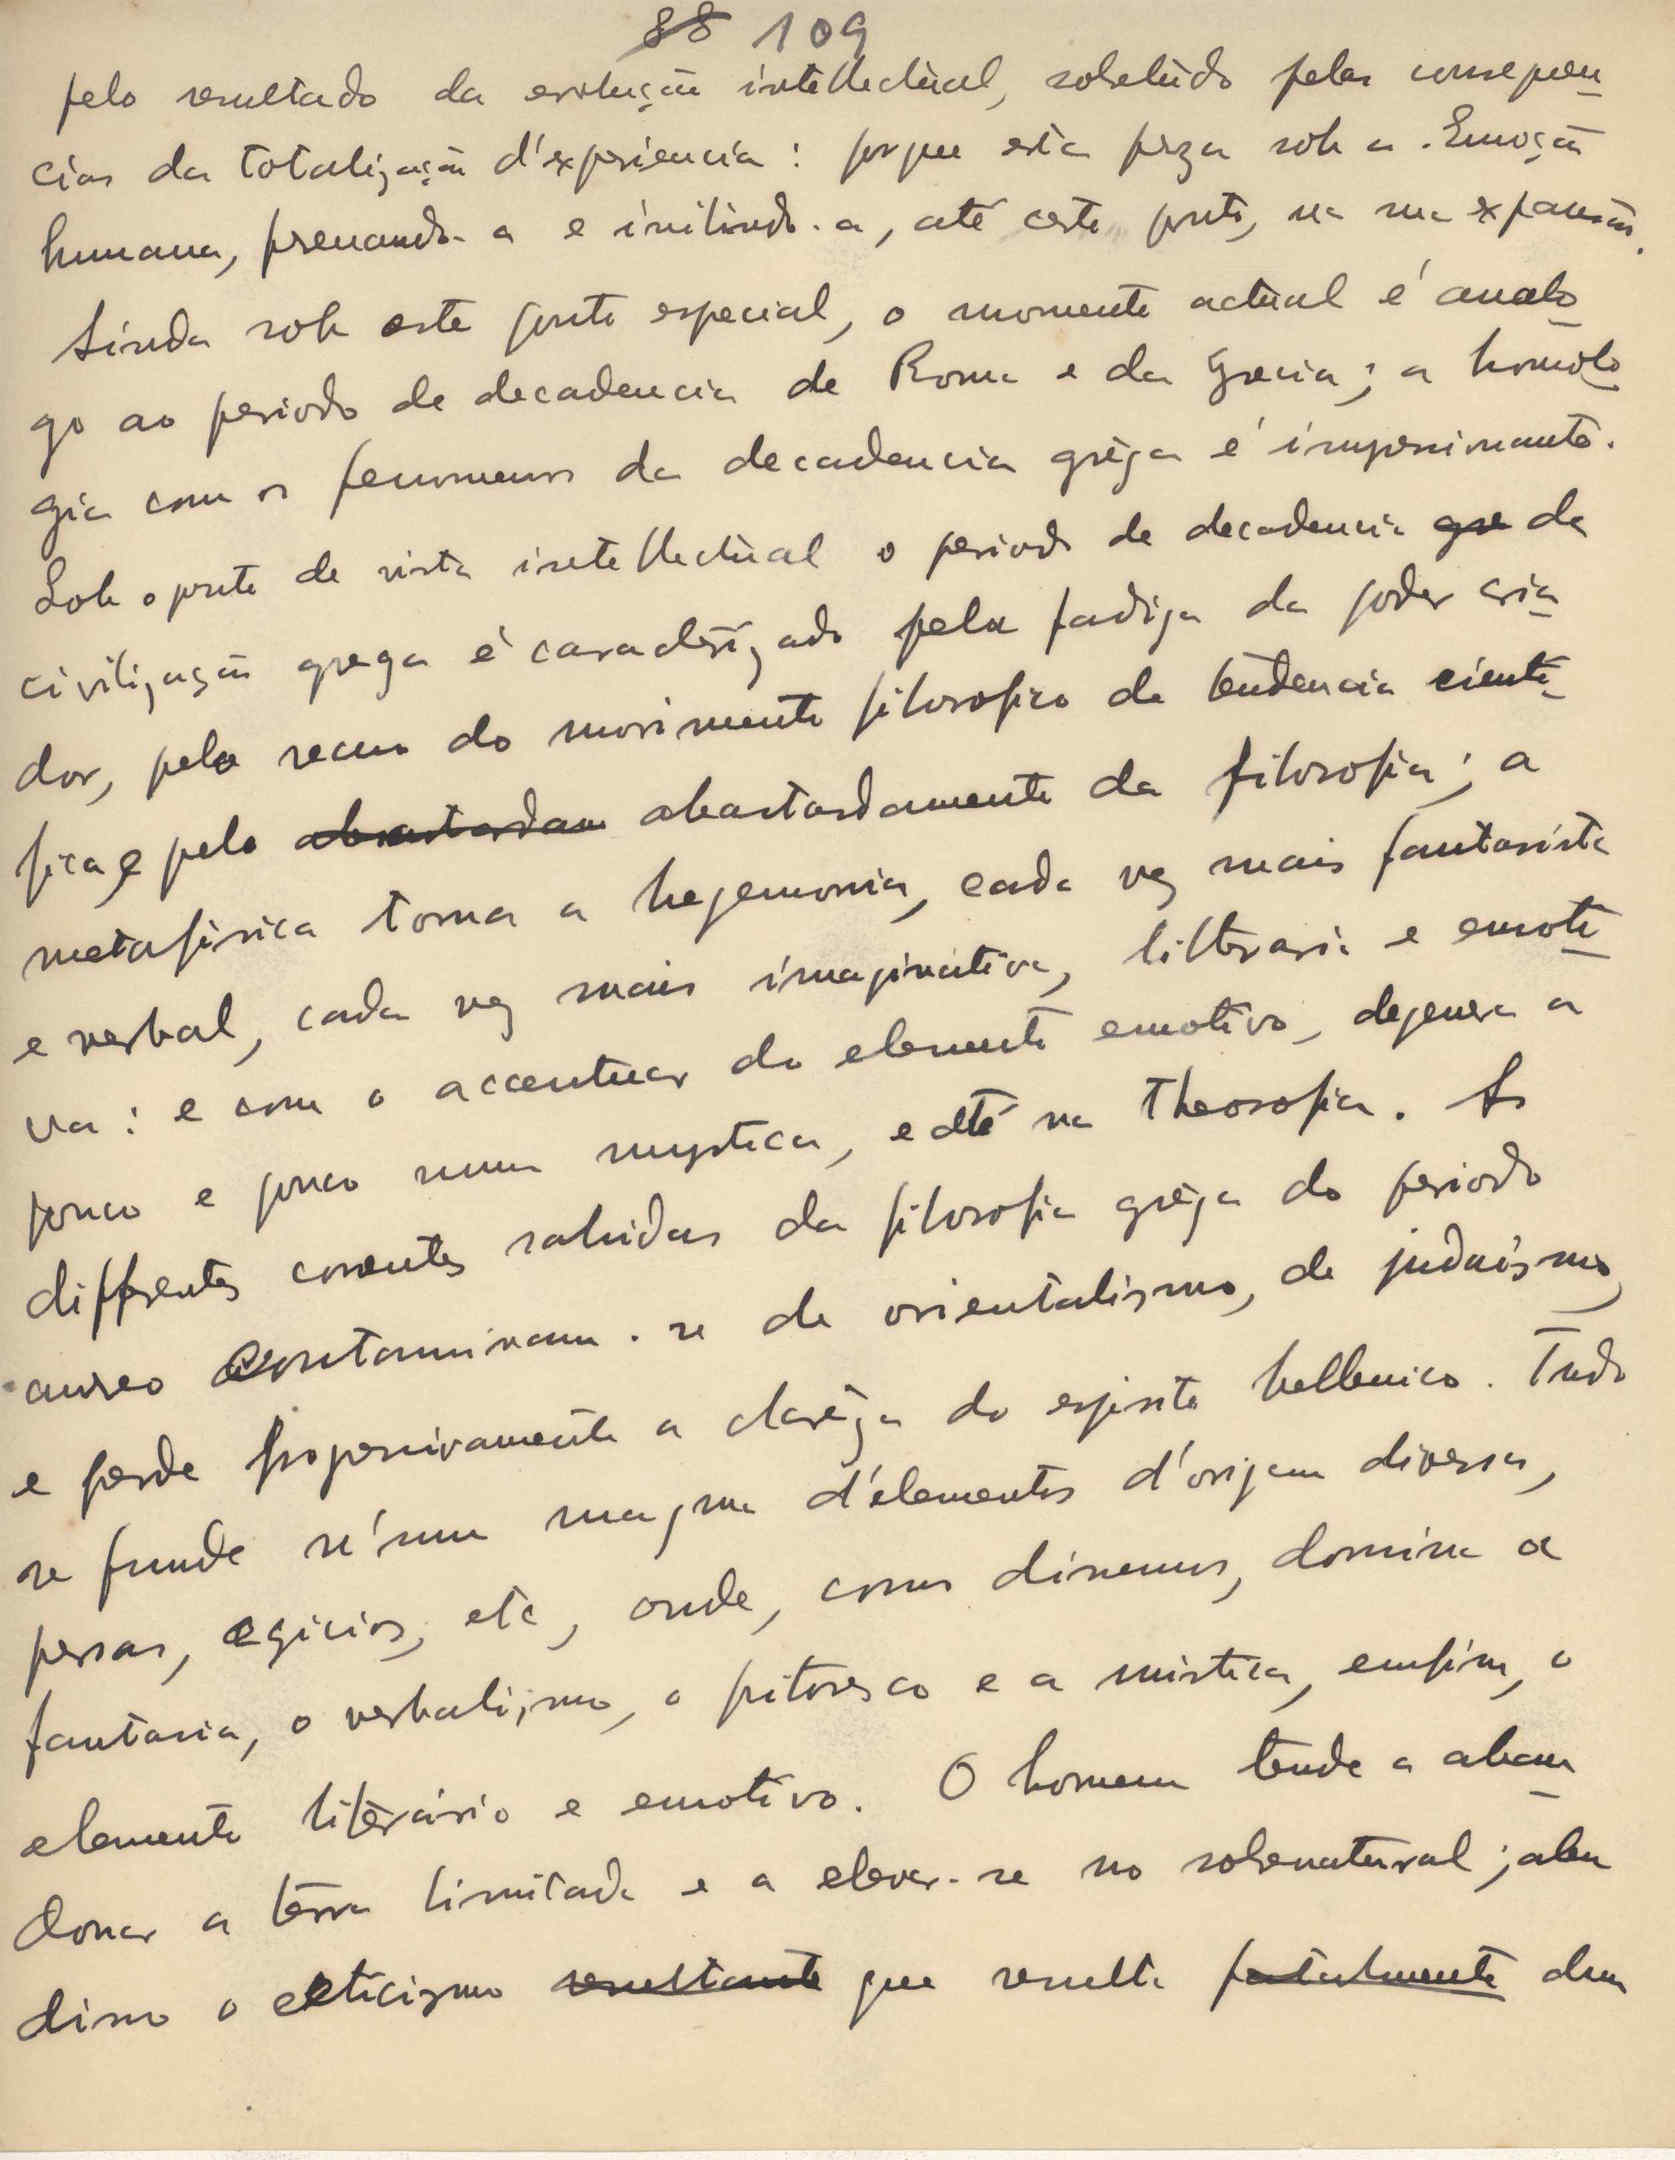 88 109
pelo resultado da evolução intellectùal, sobretùdo pelas consequen
cias da totalização d'experiencia: porque esta peza sobre a Emoção
humana, frenando-a e inibindo-a, até certo ponto, na sua expansão.
Ainda sob este ponto especial, o momento actùal é analo
go ao periodo de decadencia de Roma e da Grecia; a homolo
gia com os fenomenos da decadencia grèga é impressionante.
Sob o ponto de vista intellectùal o periodo de decadencia gre da
civilização grega é caracterizado pela fadiga do poder cria
dor, pelo recuo do movimento filosofico de tendencia cienti
fica, e pelo abastardam abastardamento da filosofia; a
metafisica toma a hegemonia, cada vez mais fantasista
e verbal, cada vez mais imaginativa, litteraria e emoti
va: e com o accentuar do elemento emotivo, degenera a
pouco e pouco numa mystica, e até na Theosofia. As
differentes correntes sahidas da filosofia grèga do periodo
aureo contaminam-se de orientalismo, de judaismo,
e perde progressivamente a clarèza do espirito hellenico. Tudo
se funde n'um magma d'elementos d'origem diversa,
persas, egicios, etc, onde, como dissemos, domina a
fantasia, o verbalismo, o pitoresco e a mistica, emfim, o
elemento literário e emotivo. O homem tende a aban
donar a terra limitada e a elevar-se no sobrenatural; alem
disso o cèticismo resultante que resulta fatalmente dum